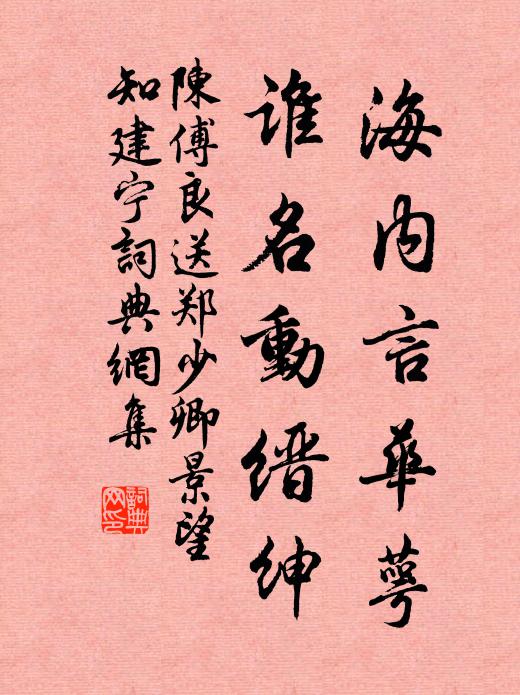 海内言華萼
誰名動縉紳
陳傅良送郑少卿景望
知建宁詞典網集
詞典网印